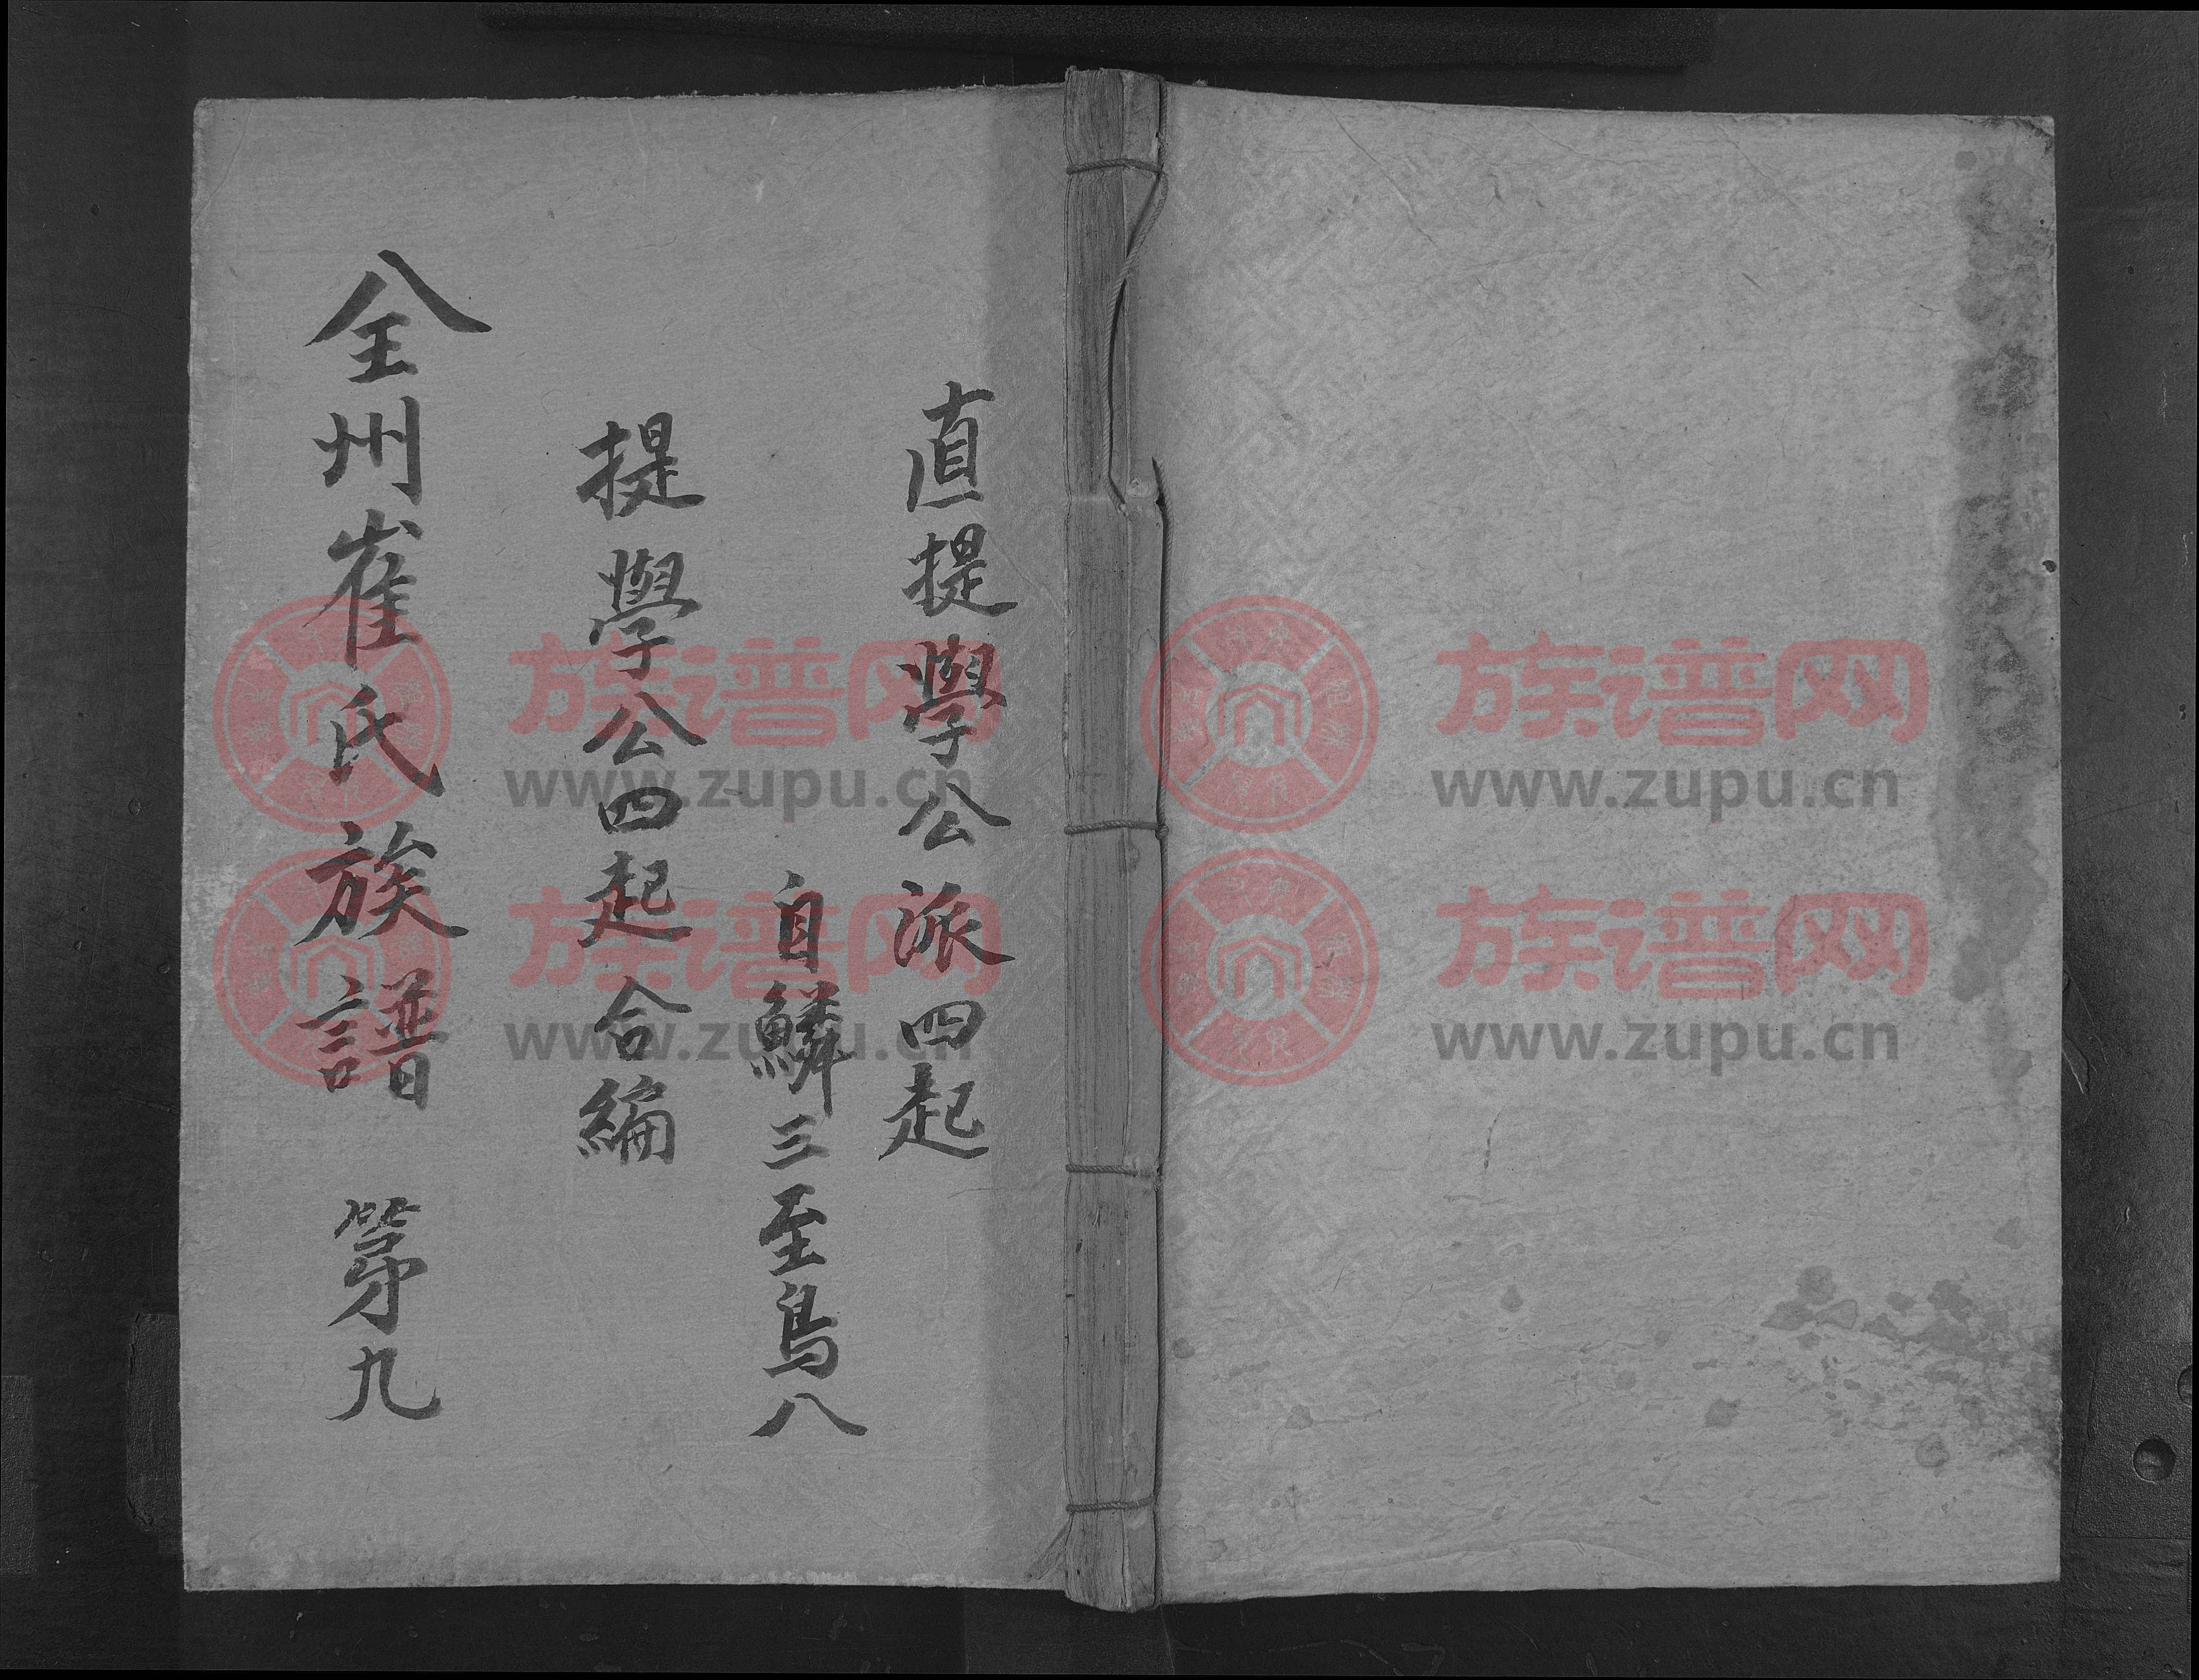 直提學公派四起
自鱗三至鳥八
提學公四起合編
全州崔氏族譜 第九
族谱网
www.zupu.cn
族谱网
www.zupu.cn
族谱网
www.zupu.cn
族谱网
www.zupu.cn